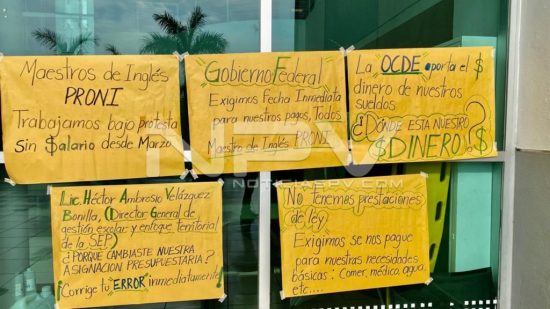 Maestros de Inglés
PRONI
Trabajamos bajo protesta
Sin $alario desde Marzo
Gobierno Federal
Exigimos Fecha Inmediata
para nuestros pagos, Todos
Maestro de Inglés PRONI
La OCDE aporta el $
dinero de nuestros
sueldos
¿DÓNDE ESTA NUESTRO
$ DINERO $?
Lic. Héctor Ambrosio Velázquez
Bonilla, (Director General de
gestión escolar y enfoque territorial
de la SEP)
¿PORQUE CAMBIASTE NUESTRA
ASIGNACION PRESUPUESTARIA?
¡Corrige tu ERROR inmediatamente!
No Tenemos prestaciones
de ley
Exigimos se nos pague
para nuestras necesidades
básicas: Comer, médico, agua,
etc....
NPV
NOTICIASPV.COM